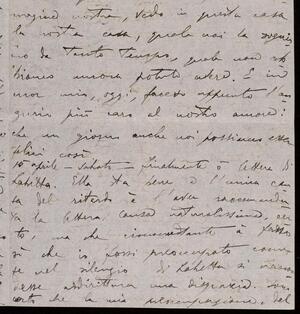 imagine nostra, vedo in questa casa
la nostra casa, quale noi la sogniamo
no da tanto tempo, quale non ab
biamo ancora potuto avere. E in
cuor mio, oggi, faccio appunto l'au
gurio più caro al nostro amore:
che un giorno anche noi possiamo esser
felici così.
15 aprile – Sabato – Finalmente ò lettera di
Labetta. Ella sta bene e l'unica cau
sa del ritardo è l'aver raccomanda
ta la lettera. Causa naturalissima, cer
to, ma che ciononostante à fatto
sì che io fossi preoccupato come
se nel silenzio di Labetta si nascon
desse addirittura una disgrazia.
certo che la mia preoccupazione, del